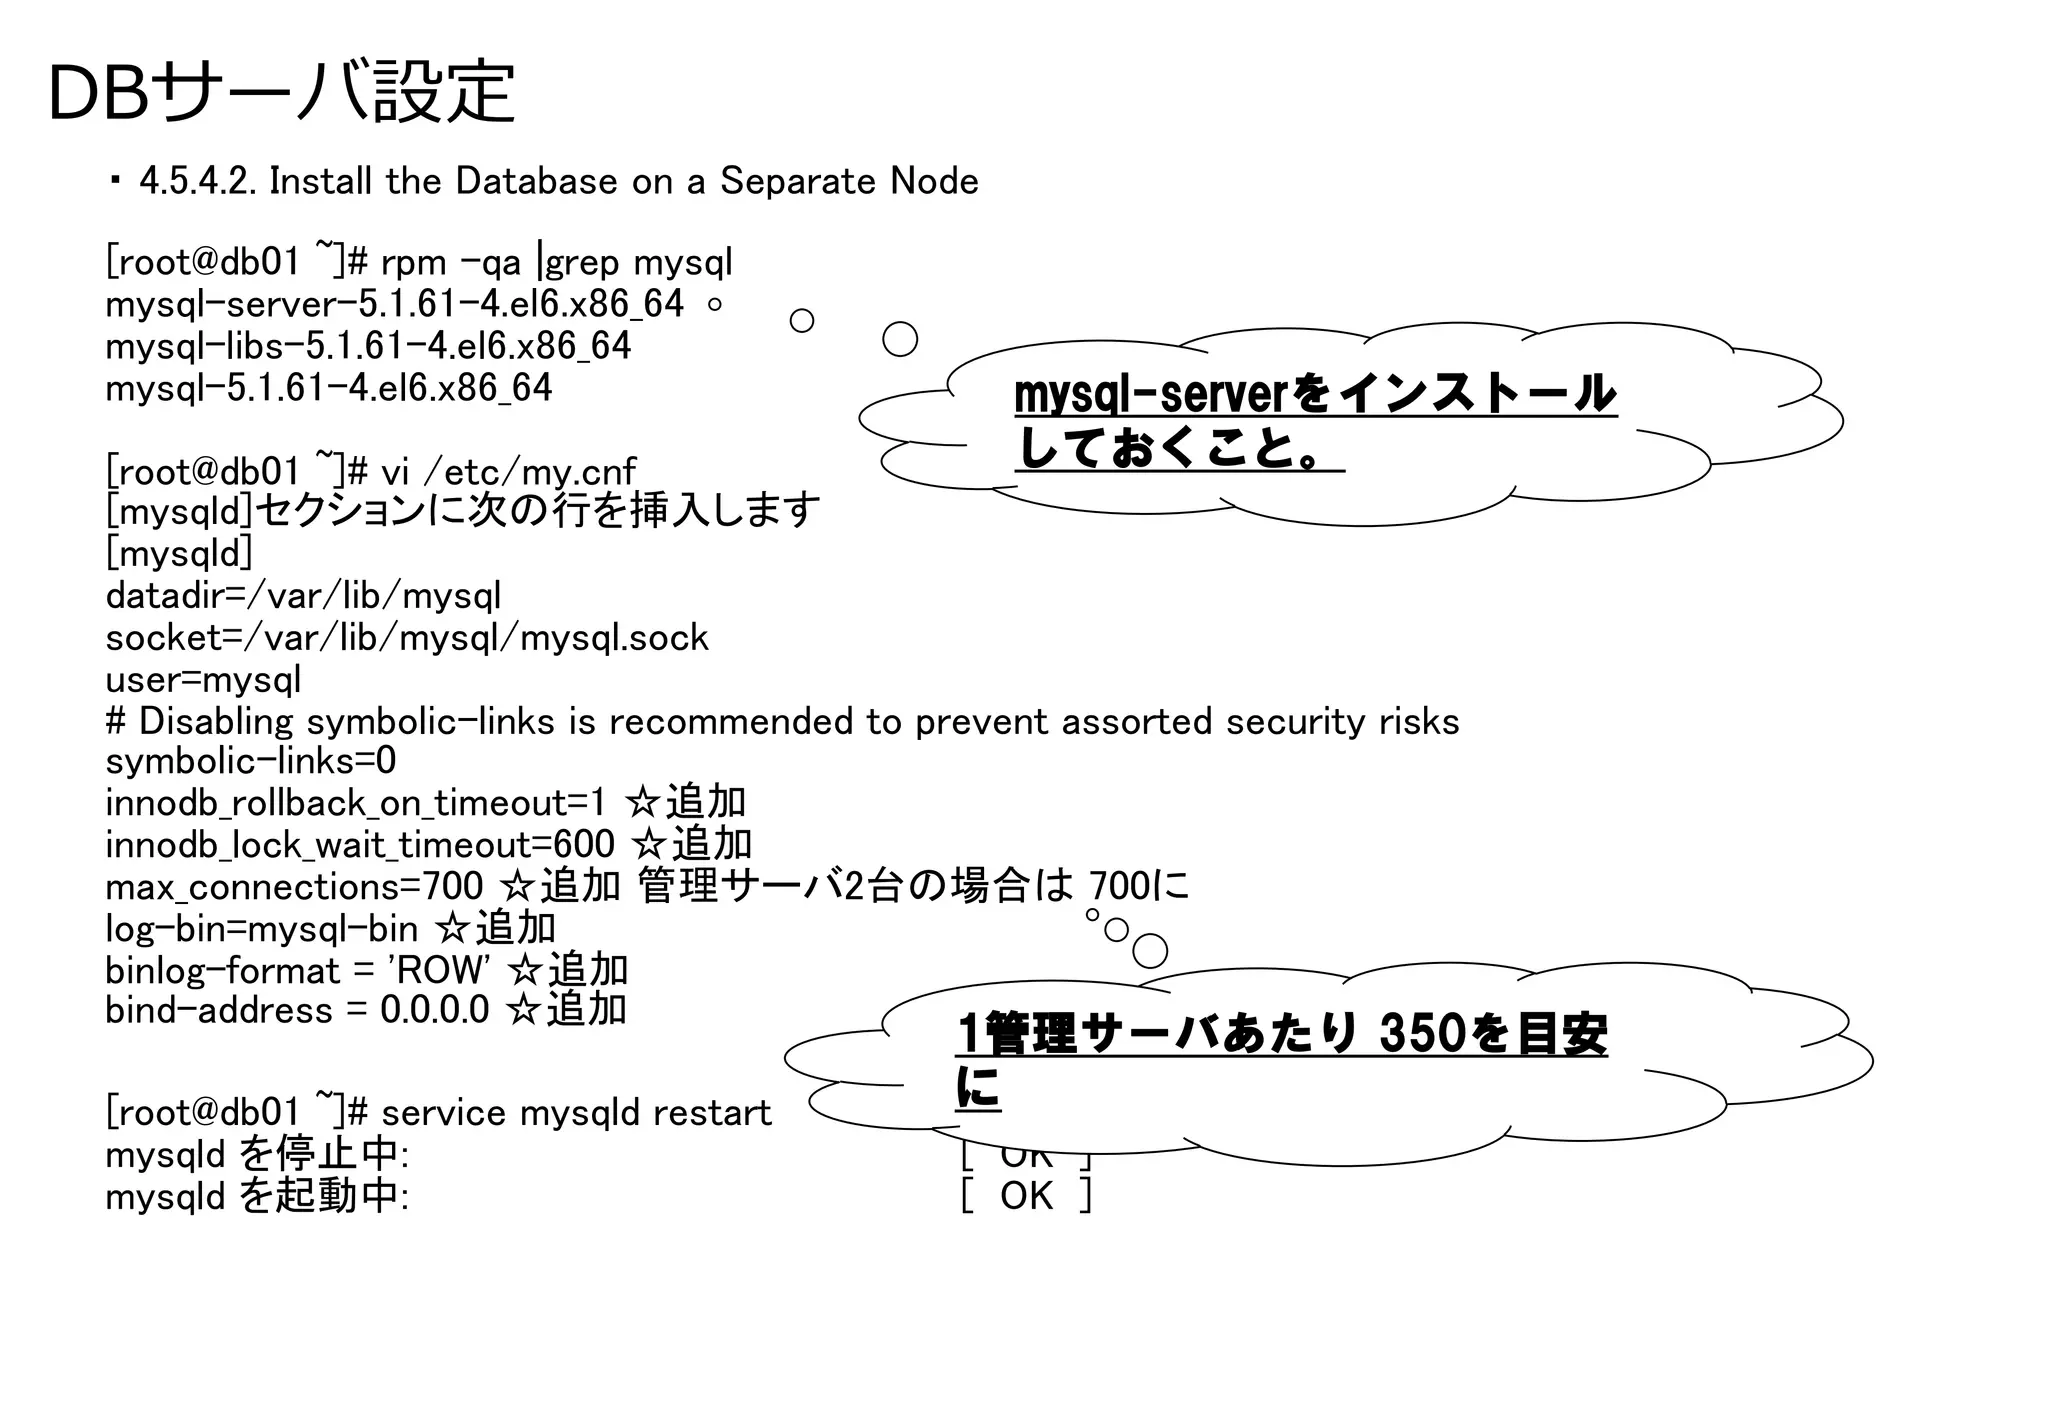 DBサーバ設定
・ 4.5.4.2. Install the Database on a Separate Node
[root@db01 ~]# rpm -qa |grep mysql
mysql-server-5.1.61-4.el6.x86_64
mysql-libs-5.1.61-4.el6.x86_64
mysql-5.1.61-4.el6.x86_64
mysql-serverをインストール
しておくこと。
[root@db01 ~]# vi /etc/my.cnf
[mysqld]セクションに次の行を挿入します
[mysqld]
datadir=/var/lib/mysql
socket=/var/lib/mysql/mysql.sock
user=mysql
# Disabling symbolic-links is recommended to prevent assorted security risks
symbolic-links=0
innodb_rollback_on_timeout=1 ☆追加
innodb_lock_wait_timeout=600 ☆追加
max_connections=700 ☆追加 管理サーバ2台の場合は 700に
log-bin=mysql-bin ☆追加
binlog-format = 'ROW' ☆追加
bind-address = 0.0.0.0 ☆追加
1管理サーバあたり 350を目安
に
[root@db01 ~]# service mysqld restart
mysqld を停止中: [ OK ]
mysqld を起動中: [ OK ]